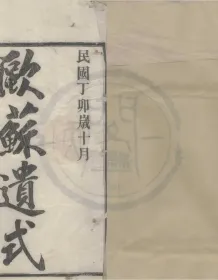 民國丁卯歲十月
歐蘇遺式